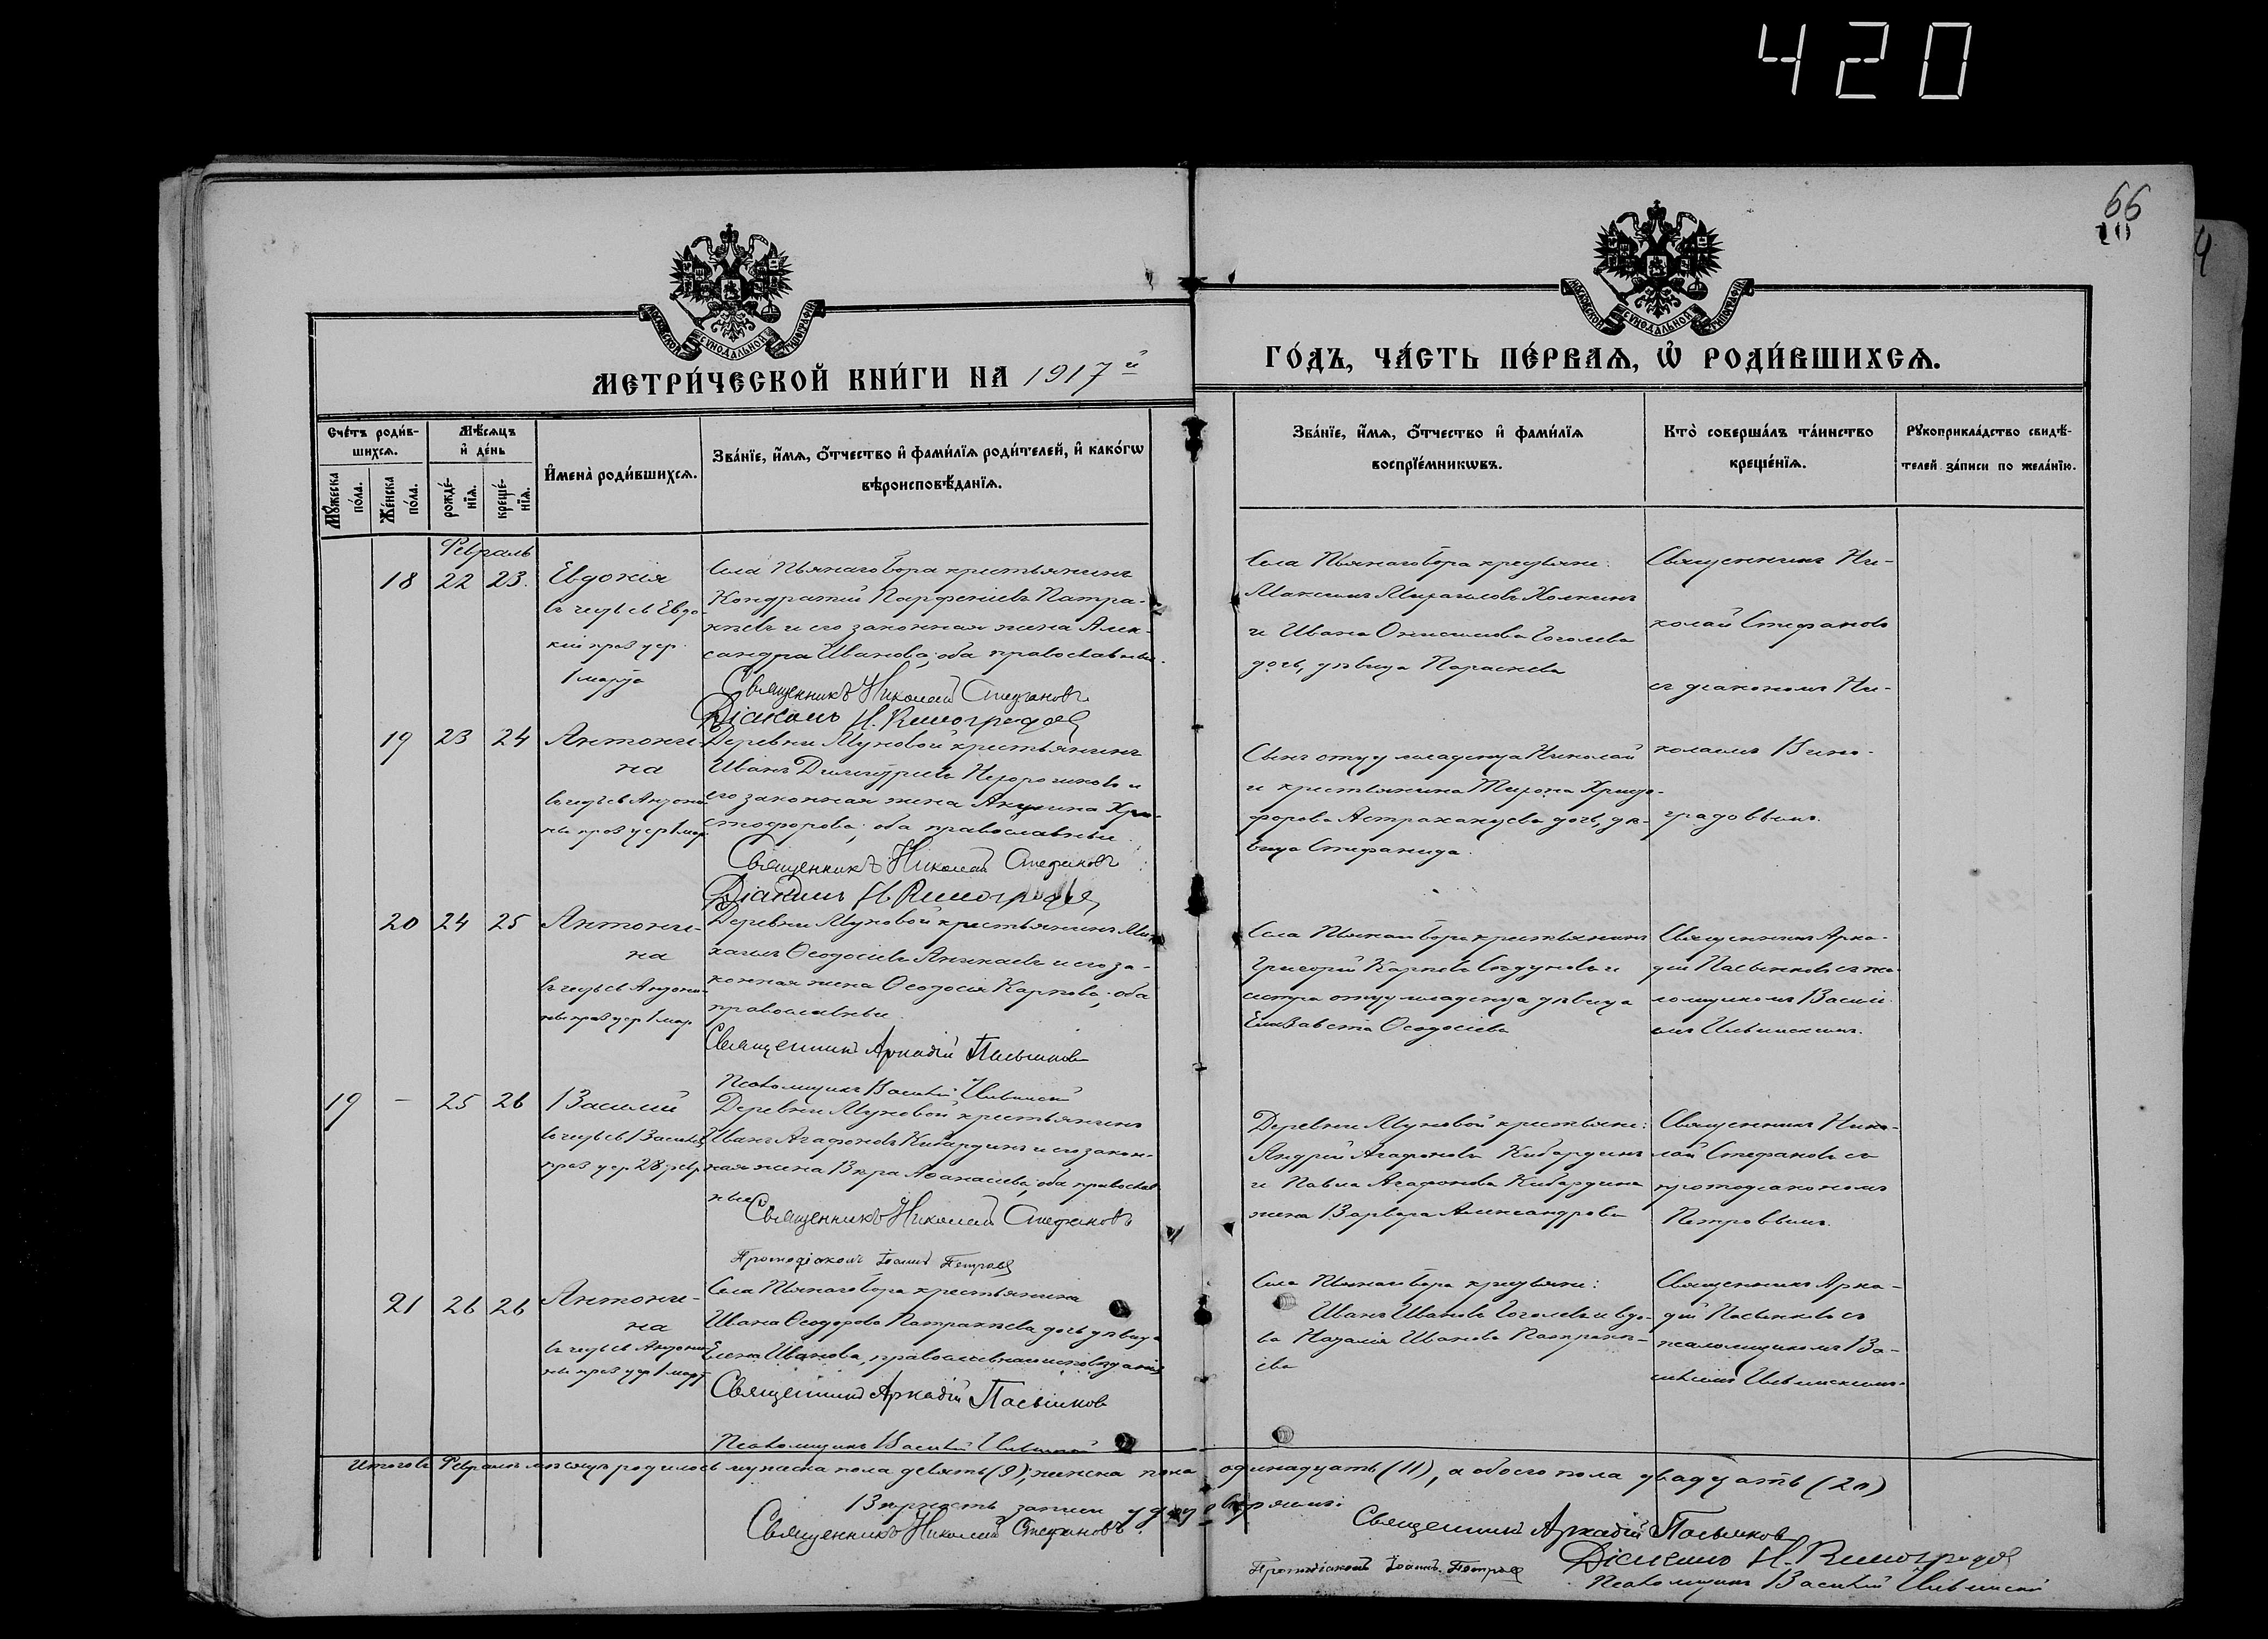 420
66
20
4
МОСКОВСКОЙ СѴНОДАЛЬНОЙ ТИПОГРАФІИ
МОСКОВСКОЙ СѴНОДАЛЬНОЙ ТИПОГРАФІИ
МЕТРИ́ЧЕСКОЙ КНИ́ГИ НА 1917й
ГО́ДЪ, ЧА́СТЬ ПЕ́РВАѦ, Ѡ҆ РОДИ́ВШИХСѦ.
Сче́тъ роди́в-
шихсѧ.
Мꙋ́жеска по́ла.
Же́нска по́ла.
Мѣ́сѧцъ
и҆ де́нь
рожде́-
нїѧ.
креще́-
нїѧ.
И҆мена̀ роди́вшихсѧ.
Зва́нїе, и҆́мѧ, ѻ҆́тчество и҆ фами́лїѧ роди́телей, и҆ како́гѡ
вѣроисповѣ́данїѧ.
Зва́нїе, и҆́мѧ, ѻ҆́тчество и҆ фами́лїѧ
воспрїе́мникѡвъ.
Кто̀ соверша́лъ та́инство
креще́нїѧ.
Рꙋкоприкла́дство свидѣ́-
телей за́писи по жела́нїю.
Февраль
18 22 23.
Евдокія
въ честь св Евдо-
кіи праз
1 марта
Села Пьянаго Бора крестьянинъ
Кондратій Парфеніевъ Патра-
кѣевъ и его законная жена Алек-
сандра Иванова; оба православные.
Священникъ Николай Стефановъ
Діаконъ Н. Виноградовъ
Села Пьянаго Бора крестьяне:
Максимъ Михаиловъ Холкинъ
и Ивана Онисимова Гоголева
дочь, дѣвица Параскева
Священникъ Ни-
колай Стефановъ
съ діакономъ Ни-
колаемъ Вино-
градовымъ.
19 23 24
Антони-
на
въ честь св Антони-
ны праз 1 мар.
Деревни Муновой крестьянинъ
Иванъ Димитріевъ и
его законная жена Акулина Хри-
стофорова; оба православные.
Священникъ Николай Стефановъ
Діаконъ Н. Виноградовъ
Сынъ отцу младенца Николай
и крестьянина Тихона Христо-
форова Астраханцева дочь, дѣ-
вица Стефанида.
20 24 25
Антони-
на
въ честь св Антони-
ны праз 1 мар
Деревни Муновой крестьянинъ Ми-
хаилъ Ѳеодосіевъ и его за-
конная жена Ѳеодосія Карпова; оба
православные.
Священникъ Аркадій Пасынковъ
Псаломщикъ Василій Ильинскій
Села Пьянаго Бора крестьянинъ
Григорій Карповъ и
сестра отцу младенца дѣвица
Елизавета Ѳеодосіева
Священникъ Арка-
дій Пасынковъ съ пса-
ломщикомъ Василі-
емъ Ильинскимъ.
19 – 25 26
Василій
въ честь св Василія
праз 28 февр
Деревни Муновой крестьянинъ
Иванъ Агафоновъ Кибардинъ и его закон-
ная жена Вѣра Аѳанасіева; оба православ-
ные
Священникъ Николай Стефановъ
Протодіаконъ Іоаннъ Петровъ
Деревни Муновой крестьяне:
Андрей Агафоновъ Кибардинъ
и Павла Агафонова Кибардина
жена Варвара Александрова
Священникъ Нико-
лай Стефановъ съ
протодіакономъ
Петровымъ.
21 26 26
Антони-
на
въ честь св Антони-
ны праз 1 март
Села Пьянаго Бора крестьянина
Ивана Ѳеодорова Патракѣева дочь дѣвица
Елена Иванова, православнаго исповѣданія
Священникъ Аркадій Пасынковъ
Псаломщикъ Василій Ильинскій
Села Пьянаго Бора крестьяне:
Иванъ Ивановъ Гоголевъ и вдо-
ва Наталія Иванова Патракѣ-
ева
Священникъ Арка-
дій Пасынковъ съ
псаломщикомъ Ва-
силіемъ Ильинскимъ.
Итого въ Февралѣ мѣсяцѣ родилось мужеска пола девять (9), женска пола одинадцать (11), а обоего пола двадцать (20)
Вѣрность записи удостовѣряемъ:
Священникъ Николай Стефановъ.
Священникъ Аркадій Пасынковъ
Протодіаконъ Іоаннъ Петровъ
Діаконъ Н. Виноградовъ
Псаломщикъ Василій Ильинскій